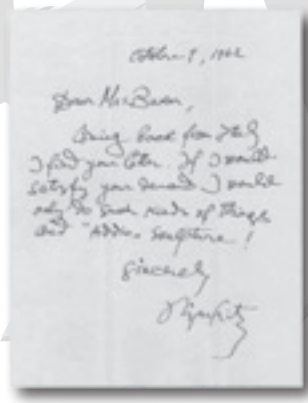 October 9, 1962
Dear Mac Baron,
Being back from Italy
I find your letter. If I would
satisfy your demand I would
only do such kinds of things
and "Addio Sculpture!
Sincerely